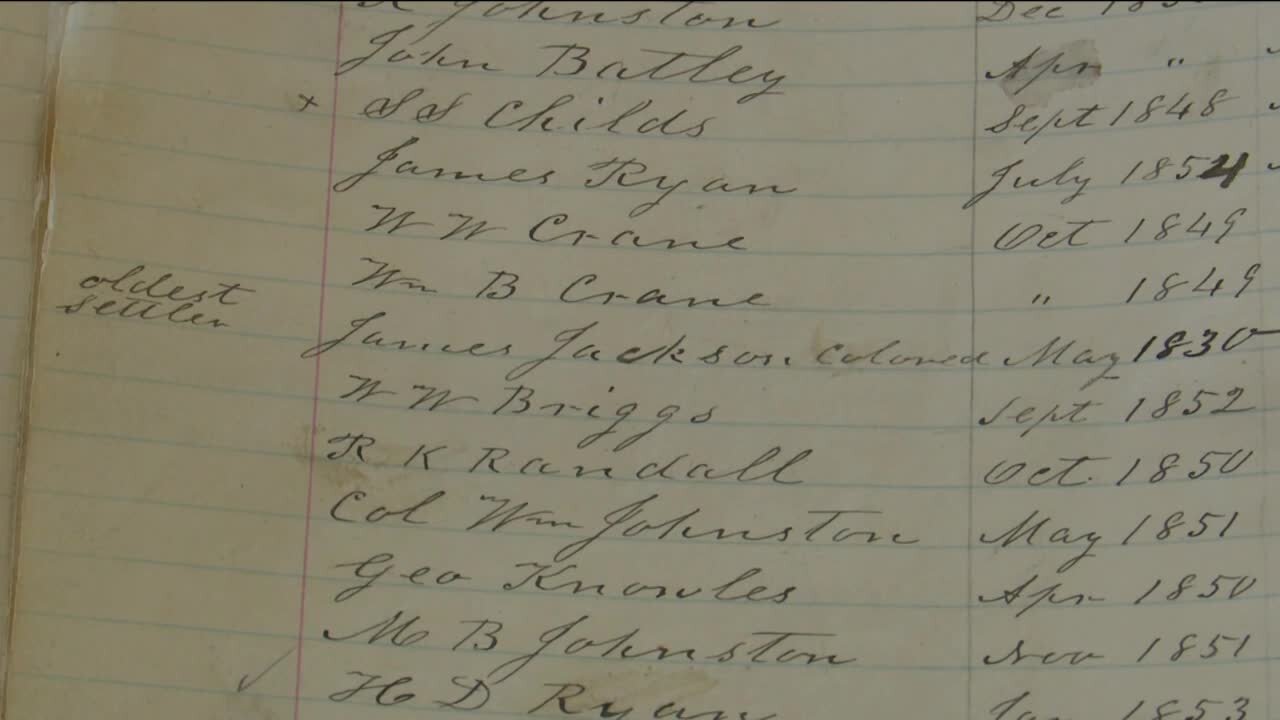 Johnston Dec
John Batley Apr "
x S S Childs Sept 1848
James Ryan July 1854
W W Crane Oct 1849
Wm B Crane " 1849
oldest
settler
James Jackson Colored May 1830
W W Briggs Sept 1852
R K Randall Oct. 1850
Col Wm Johnston May 1851
Geo Knowles Apr 1850
M B Johnston Nov 1851
✓ H D Ryan Jan 1853